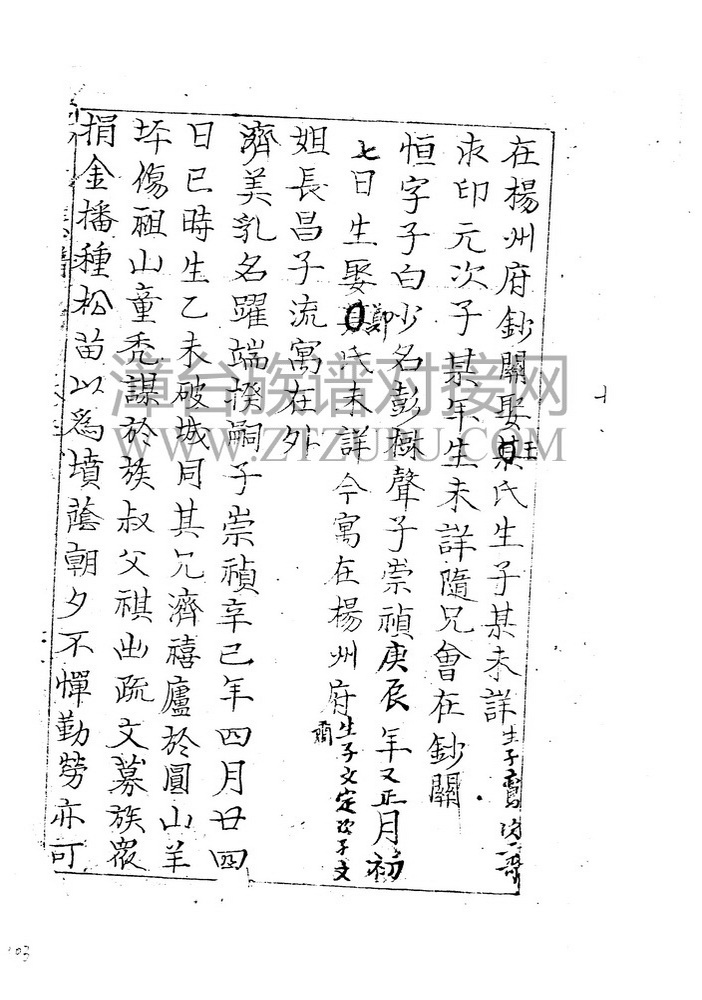 在楊州府鈔關娶王氏生子某未詳生子
求印元次子某年生未詳隨兄會在鈔關
恒字子白少名彭祿聲子崇禎庚辰年又正月初
七日生娶鄭氏未詳今寓在楊州府生子文定次子文
齋
姐長昌子流寓在外
濟美乳名躍端揆嗣子崇禎辛巳年四月廿四
日巳時生乙未破城同其兄濟禧廬於圓山羊
坪傷祖山童禿謀於族叔父祺出疏文募族眾
捐金播種松苗以為墳蔭朝夕不憚勤勞亦可
漳台族谱对接网
WWW.ZTZUPU.COM
103